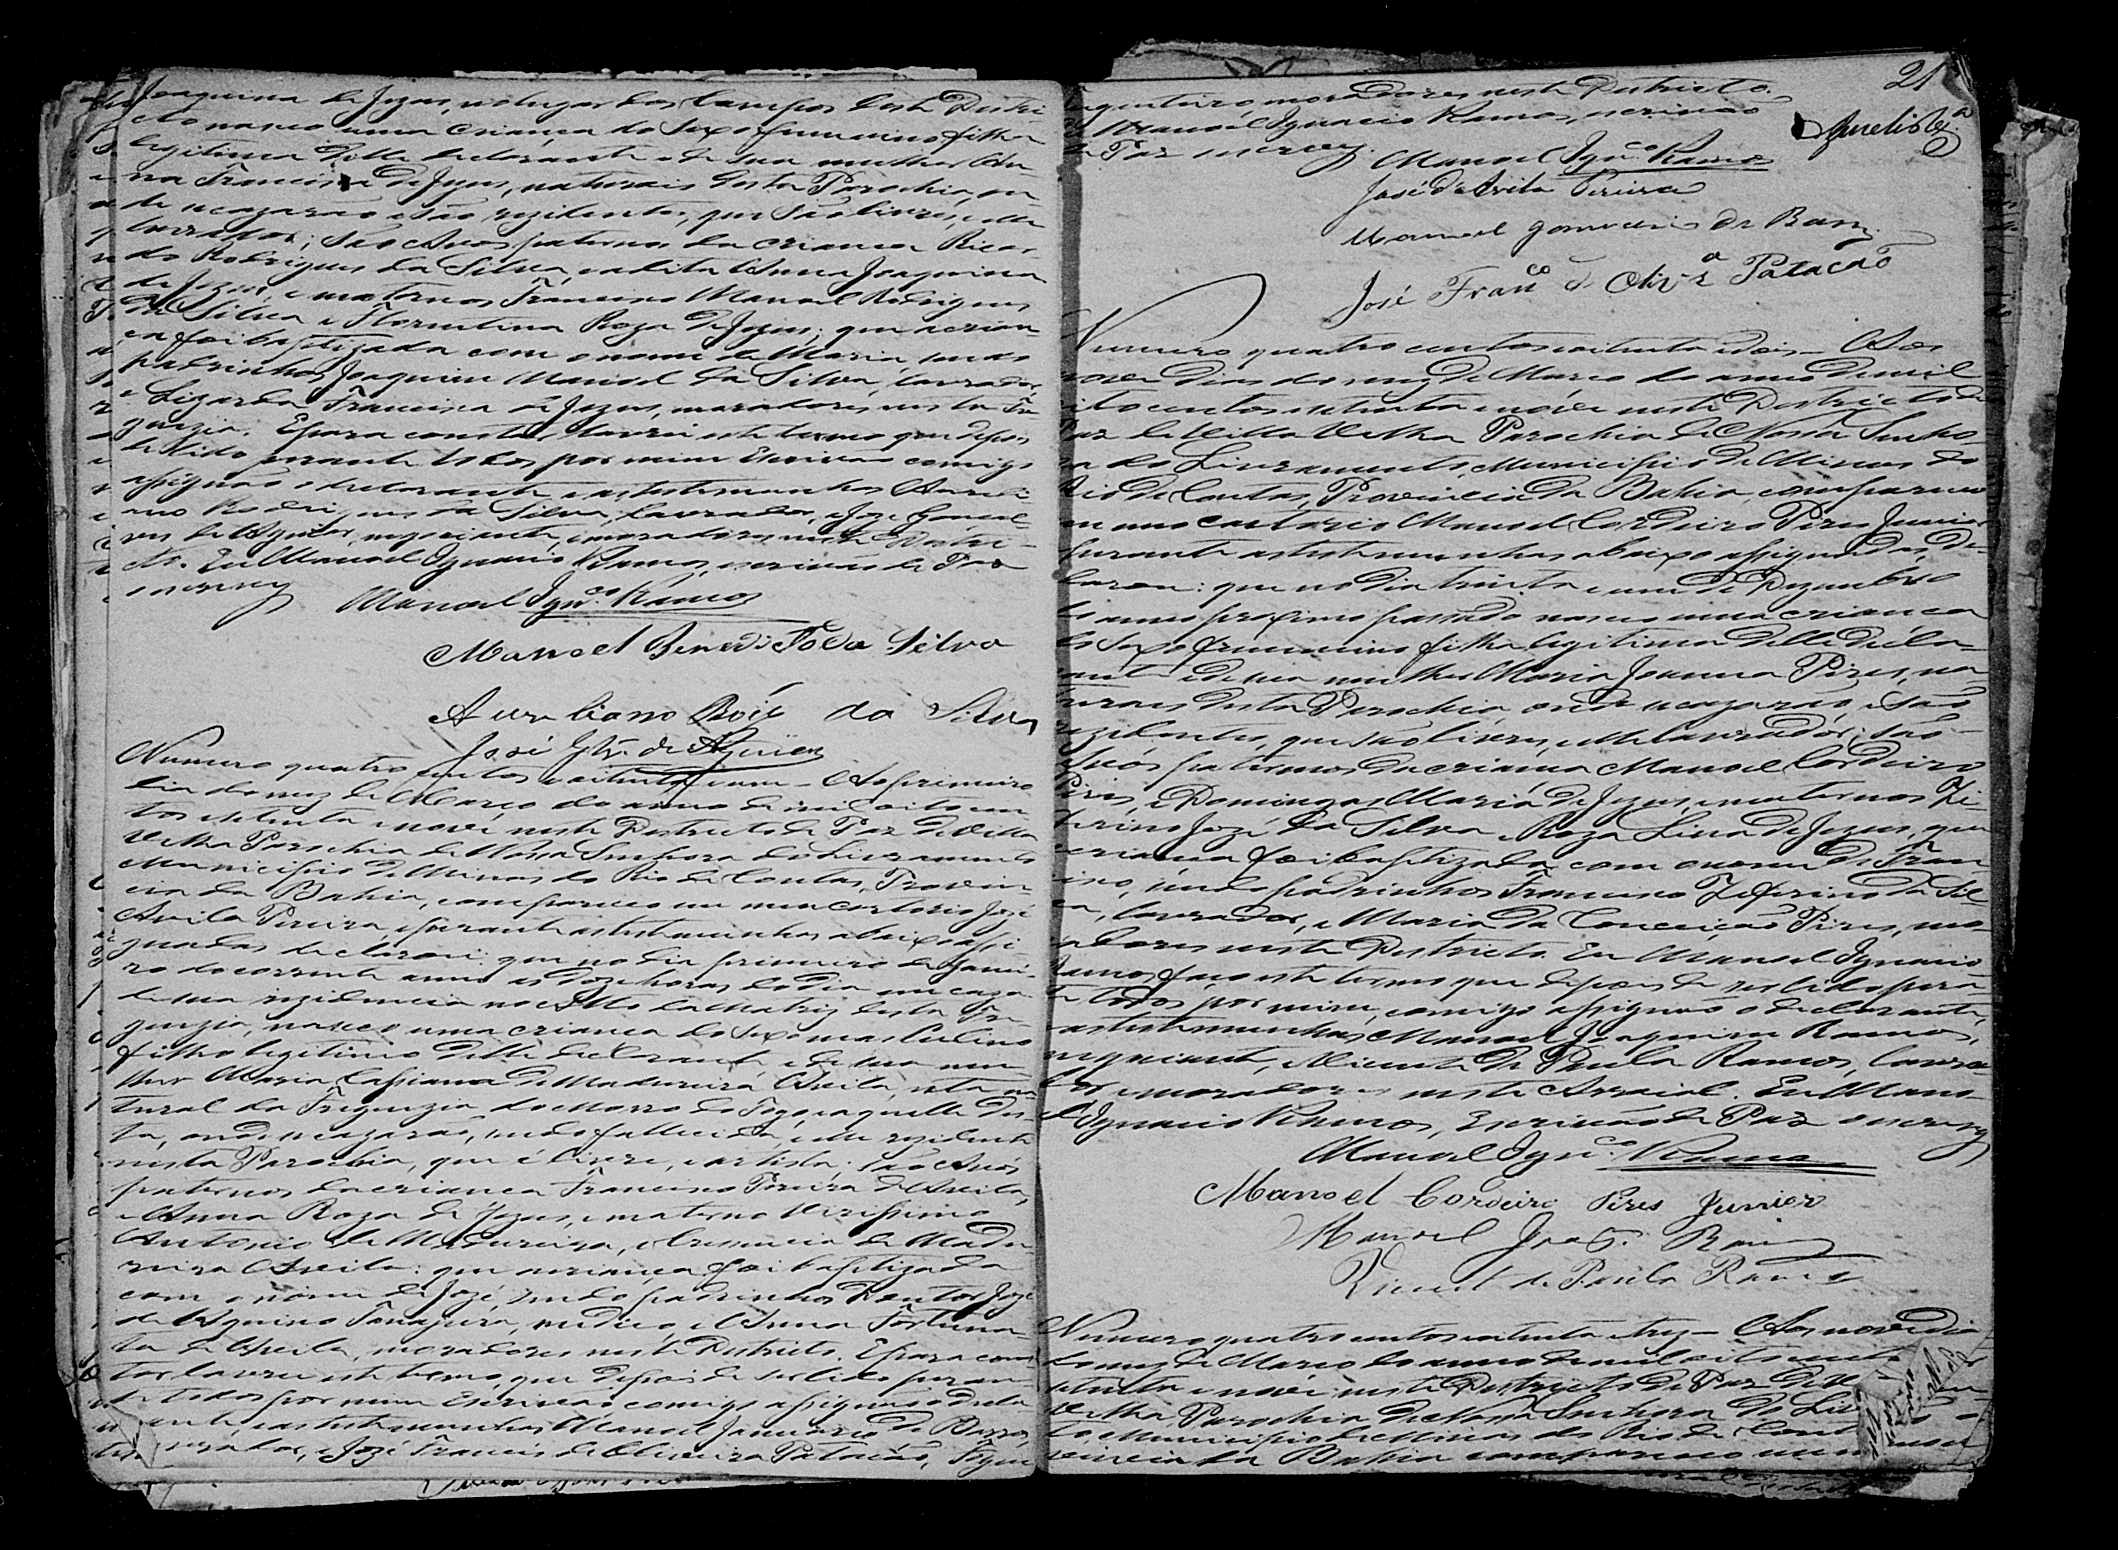 Joaquina de Jezus, no lugar dos Campos deste Destri
cto nasceo uma criança do sexo femenino filha
legitima delle declarante e de sua mulher An
na Francisca de Jezus, naturais desta Parochia, on
de se cazarão e são rezidentes, que são livres, e elle
lavrador; são Avos paternos da criança Ricar
do Rodrigues da Silva, e a dita Anna Joaquina
de Jezus, e maternos Francisco Manoel Rodrigues
da Silva e Florentina Roza de Jezus; que a crian
ça foi baptizada com o nome de Maria, sendo
padrinhos Joaquim Manoel da Silva, lavrador,
e Francisca de Jezus, moradores nesta Fre
guezia. E para constar lavrei este termo que depois
de lido perante todos por mim Escrivão comigo
assignão o declarante e as testemunhas Aureli
ano Rodrigues da Silva, lavrador, e Jozé Gonsal
ves de Aguiar, negociante, moradores neste Destri-
cto. Eu Manoel Ignacio Ramos, escrivão de Paz
escrevy
Manoel Ignco Ramos
Manoel Benedito da Silva
Aureliano da Silva
José de Aguiar
Numero quatro centos e oitenta e um - Ao primeiro
dia do mez de Março do anno de mil oito cen
tos e setenta e nove neste Destricto de Paz de Villa
Velha Parochia de Nossa Senhora do Livramento
Municipio de Minas do Rio de Contas, Provin
cia da Bahia, compareceo em meu cartorio José
Avila Pereira, e perante as testemunhas abaixo assi
gnadas declarou: que no dia primeiro de Janei
ro do corrente anno as doze horas do dia em caza
de sua rezidencia no Alto da Matriz desta Fre
guezia, nasceo uma criança do sexo masculino
filho legitimo delle declarante e de sua mu
lher Maria Cassiana de Madureira Avila, esta na
tural da Freguezia do Morro do Fogo, e aquelle des
ta, onde se cazarão, sendo fallecida, e elle rezidente
nesta Parochia, que é livre, e artista; são Avós
paternos da criança Francisco Pereira de Avila,
e Anna Roza de Jezus, e materno Verissimo
Antonio de Madureira, e de Madu
reira Avila: que a criança foi baptizada
com o nome de Jozé, sendo padrinhos Doutor Jozé
de Aquino Tanajura, medico, e Anna Fortuna
ta de Avila, moradores neste Destricto. E para cons
tar lavrei este termo, que depois de ser lido peran
te todos por mim Escrivão comigo assignão o decla
rante, e as testemunhas Manoel Januario de Barros,
lavrador, e José Francisco de Oliveira Patacão, Fogue
21
moradores neste Destricto.
Eu Manoel Ignacio Ramos, escrivão
de Paz escrevy.
Manoel Ignco Ramos
José d'Avila Pereira
Manoel Januario de Barros
José Franco de Olivra Patacão
Numero quatro centos e oitenta e dois - Aos
nove dias do mez de Março do anno de mil
oito centos e setenta e nove neste Destricto de
Paz de Villa Velha Parochia de Nossa Senho
ra do Livramento, Municipio de Minas do
Rio de Contas, Provincia da Bahia, compareceo
em meu cartorio Manoel Cordeiro Pires Junior
perante as testemunhas abaixo assignadas, de-
clarou: que no dia trinta e um de Dezembro
do anno proximo passado nasceo uma criança
do sexo femenino filha legitima delle decla-
rante e de sua mulher Maria Joanna Pires, na
turais desta Parochia, onde se cazarão, e são
rezidentes, que são livres, e elle lavrador; são
Avós paternos da criança Manoel Cordeiro
Pires, e Domingas Maria de Jezus, e maternos Ze
ferino Jozé da Silva e Roza Lina de Jezus, que
a criança foi baptizada com o nome de Fran
sendo padrinhos Francisco Zeferino da Sil
va, lavrador, e Maria da Conceição Pires, mo
radores neste Destricto. Eu Manoel Ignacio
Ramos faço este termo que depois de ser lido peran
te todos por mim, comigo assignão o declarante,
e as testemunhas Manoel Joaquim Ramos,
negociante, e Vicente de Paula Ramos, lavra
dor e moradores neste Arraial. Eu Mano
el Ignacio Ramos, Escrivão de Paz escrevy
Manoel Ignco Ramos
Manoel Cordeiro Pires Junior
Manoel Joaqm Ramos
Vicente de Paula Ramos
Numero quatro centos e oitenta e trez - Aos nove dia
do mez de Março do anno de mil oito centos
setenta e nove neste Destricto de Paz de
Velha Parochia de Nossa Senhora do Liv
to, Municipio de Minas do Rio de Cont
vincia da Bahia compareceo em